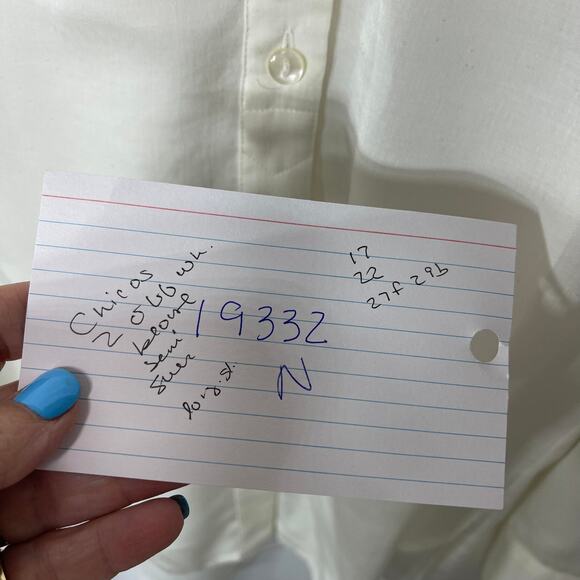 Chicos
2 off wh.
blouse
semi
suer
long. sl.
19332
N
17
22
27f 29b